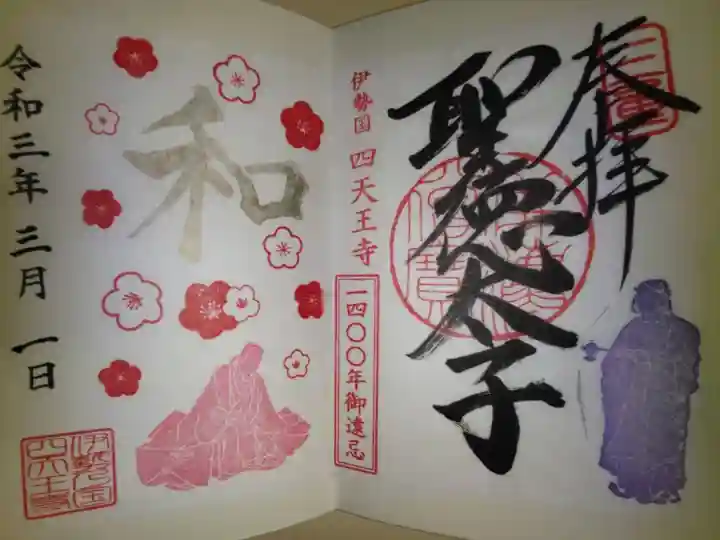 奉拝
聖徳太子
伊勢国 四天王寺
一四〇〇年御遠忌
和
令和三年 三月 一日
伊勢国
四天王寺